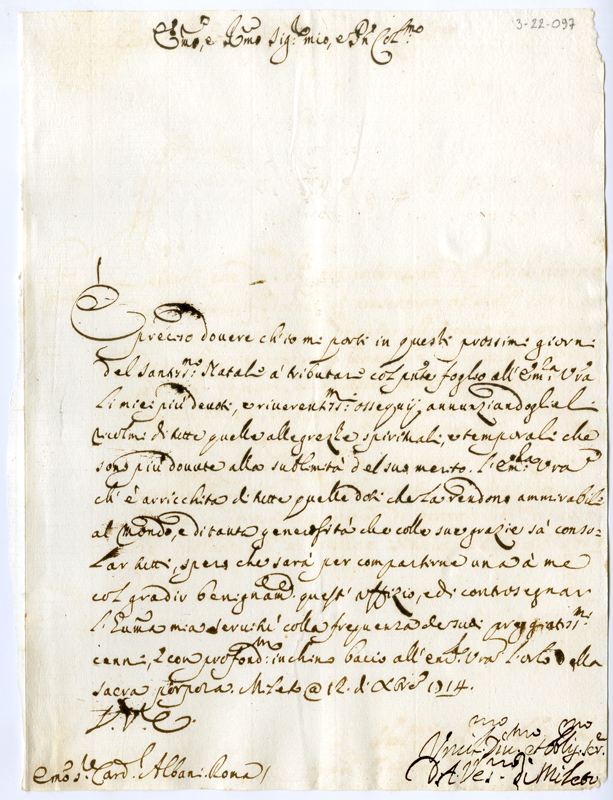 3-22-097
Emo, e Rmo Sig.r mio, e Pne Col.mo
È preciso dovere ch'io mi porti in questi prossimi giorni
del Santiss.mo Natale à tributare col pnte foglio all'Em.za Vra
li miei più devoti, e riverentiss.mi ossequij, annunziandogliel
ricolmi di tutte quelle allegrezze spirituali, e temporali che
sono più dovute alla sublimità del suo merito. L'Em.za Vra
ch'è arricchita di tutte quelle doti che La rendono ammirabile
al Mondo, e di tanta generosità che colle sue grazie sà conso-
lar tutti, spero che sarà per compartirne una à me
col gradir benignam.e questi uffizio, e di controsegnar
l'Umma mia servitù colla frequenza de suoi preggiatiss.mi
cenni, e con profond.mo inchino baccio all'Em.za Vra l'orlo della
sacra porpora. Mileto @ 12. di Xbre 1714.
D. V. E.
Emo S.re Card.l Albani. Roma /
Umil.mo Div.mo et Oblig.mo Ser.e
D. A. Ves.vo di Mileto